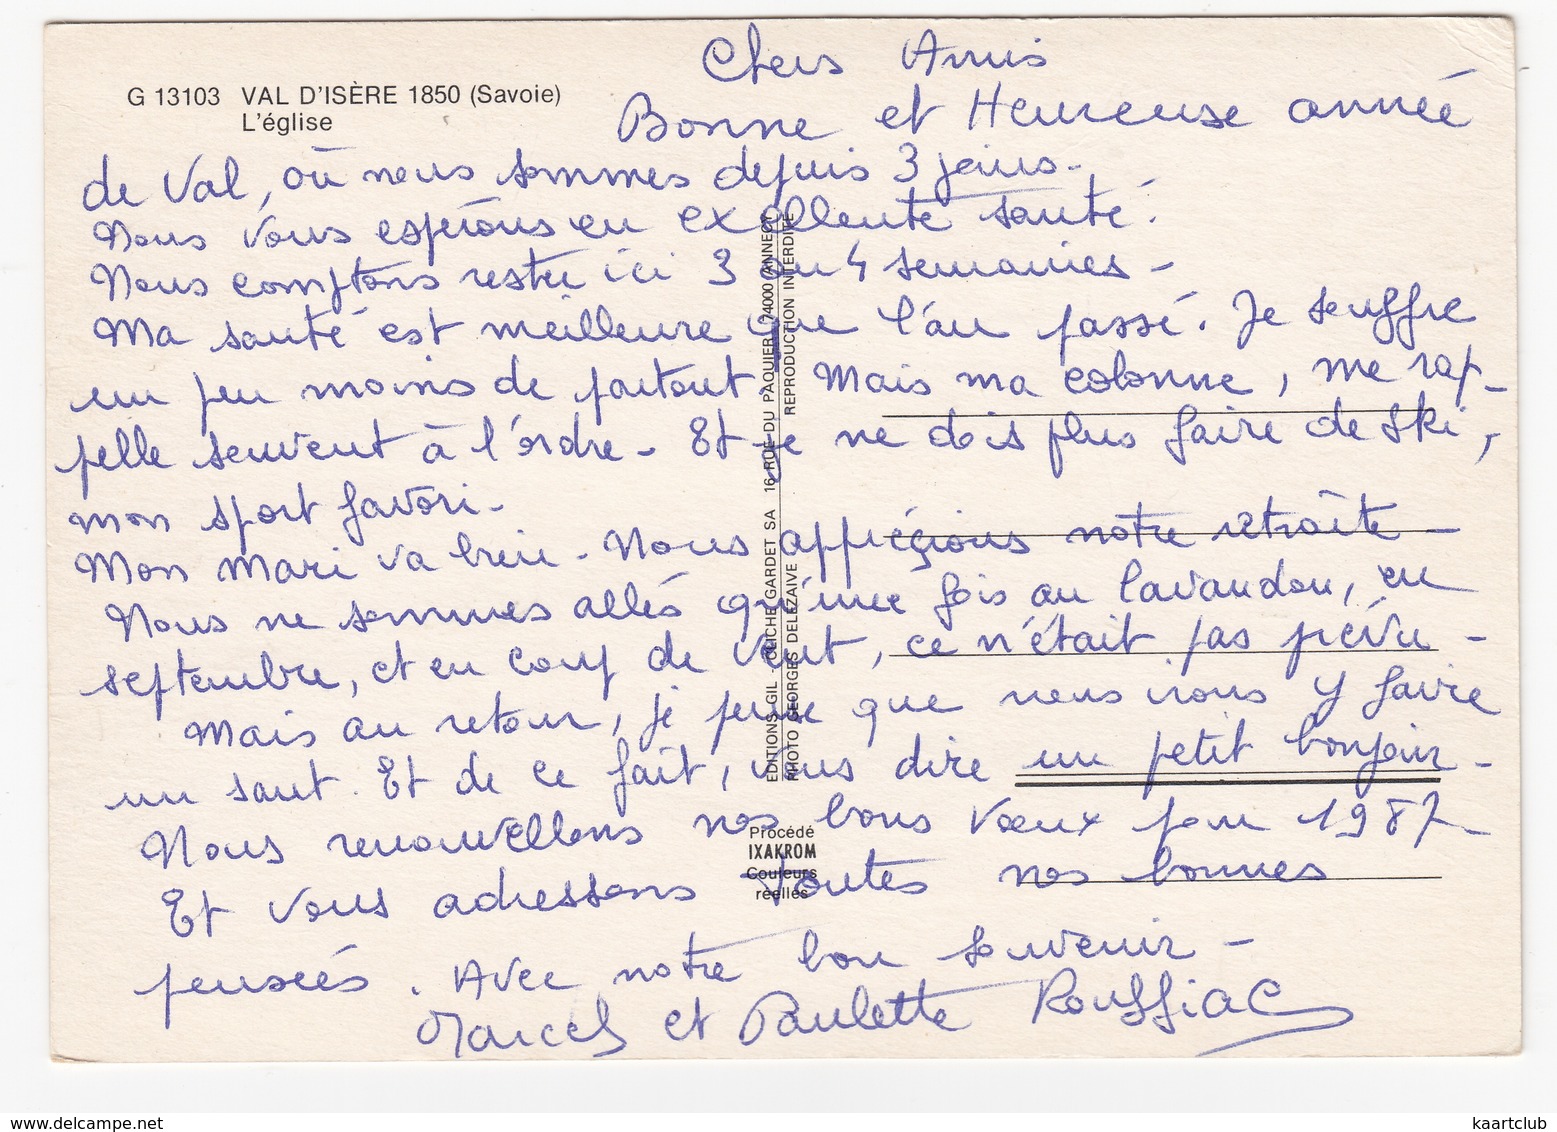 Chers Amis
G 13103 VAL D'ISÈRE 1850 (Savoie)
L'église
Bonne et Heureuse année
de Val, où nous sommes depuis 3 jours -
Nous vous espérons en excellente santé.
Nous comptons rester ici 3 ou 4 semaines -
Ma santé est meilleure que l'an passé. Je souffre
un peu moins de partout. Mais ma colonne, me rap-
pelle souvent à l'ordre - Et je ne dois plus faire de ski,
mon sport favori -
Mon mari va bien - Nous apprécions notre retraite -
Nous ne sommes allés qu'une fois au lavandou, en
septembre, et en coup de vent, ce n'était pas prévu -
Mais au retour, je pense que nous irons y faire
un saut. Et de ce fait, vous dire un petit bonjour -
Nous renouvellons nos bons vœux pour 1987 -
Et vous adressons toutes nos bonnes
pensées. Avec notre bon souvenir -
Marcel et Paulette Rouffiac
EDITIONS GIL - CLICHE GARDET SA 16 RUE DU PAQUIER 74000 ANNECY
PHOTO GEORGES DELEZAIVE REPRODUCTION INTERDITE
Procédé
IXAKROM
Couleurs
réelles
kaartclub
www.delcampe.net